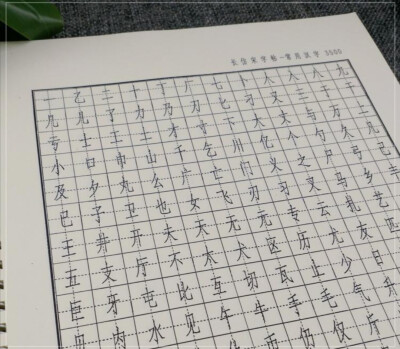 长仿宋字帖-常用汉字 3500
一乙二十丁厂七卜八人入九
几儿了力乃刀匕刁又三干于
亏士土工才寸下大丈与万上
小口巾山千乞川亿个勺久凡
及夕丸么广亡门义之尸弓己
已子卫也女飞刃习叉马乡丰
王井开夫天无元专云扎艺
五支厅不太犬区历尤友匹
巨牙屯比互切瓦止少日
肉水见午牛手毛气升
币仍仅斤